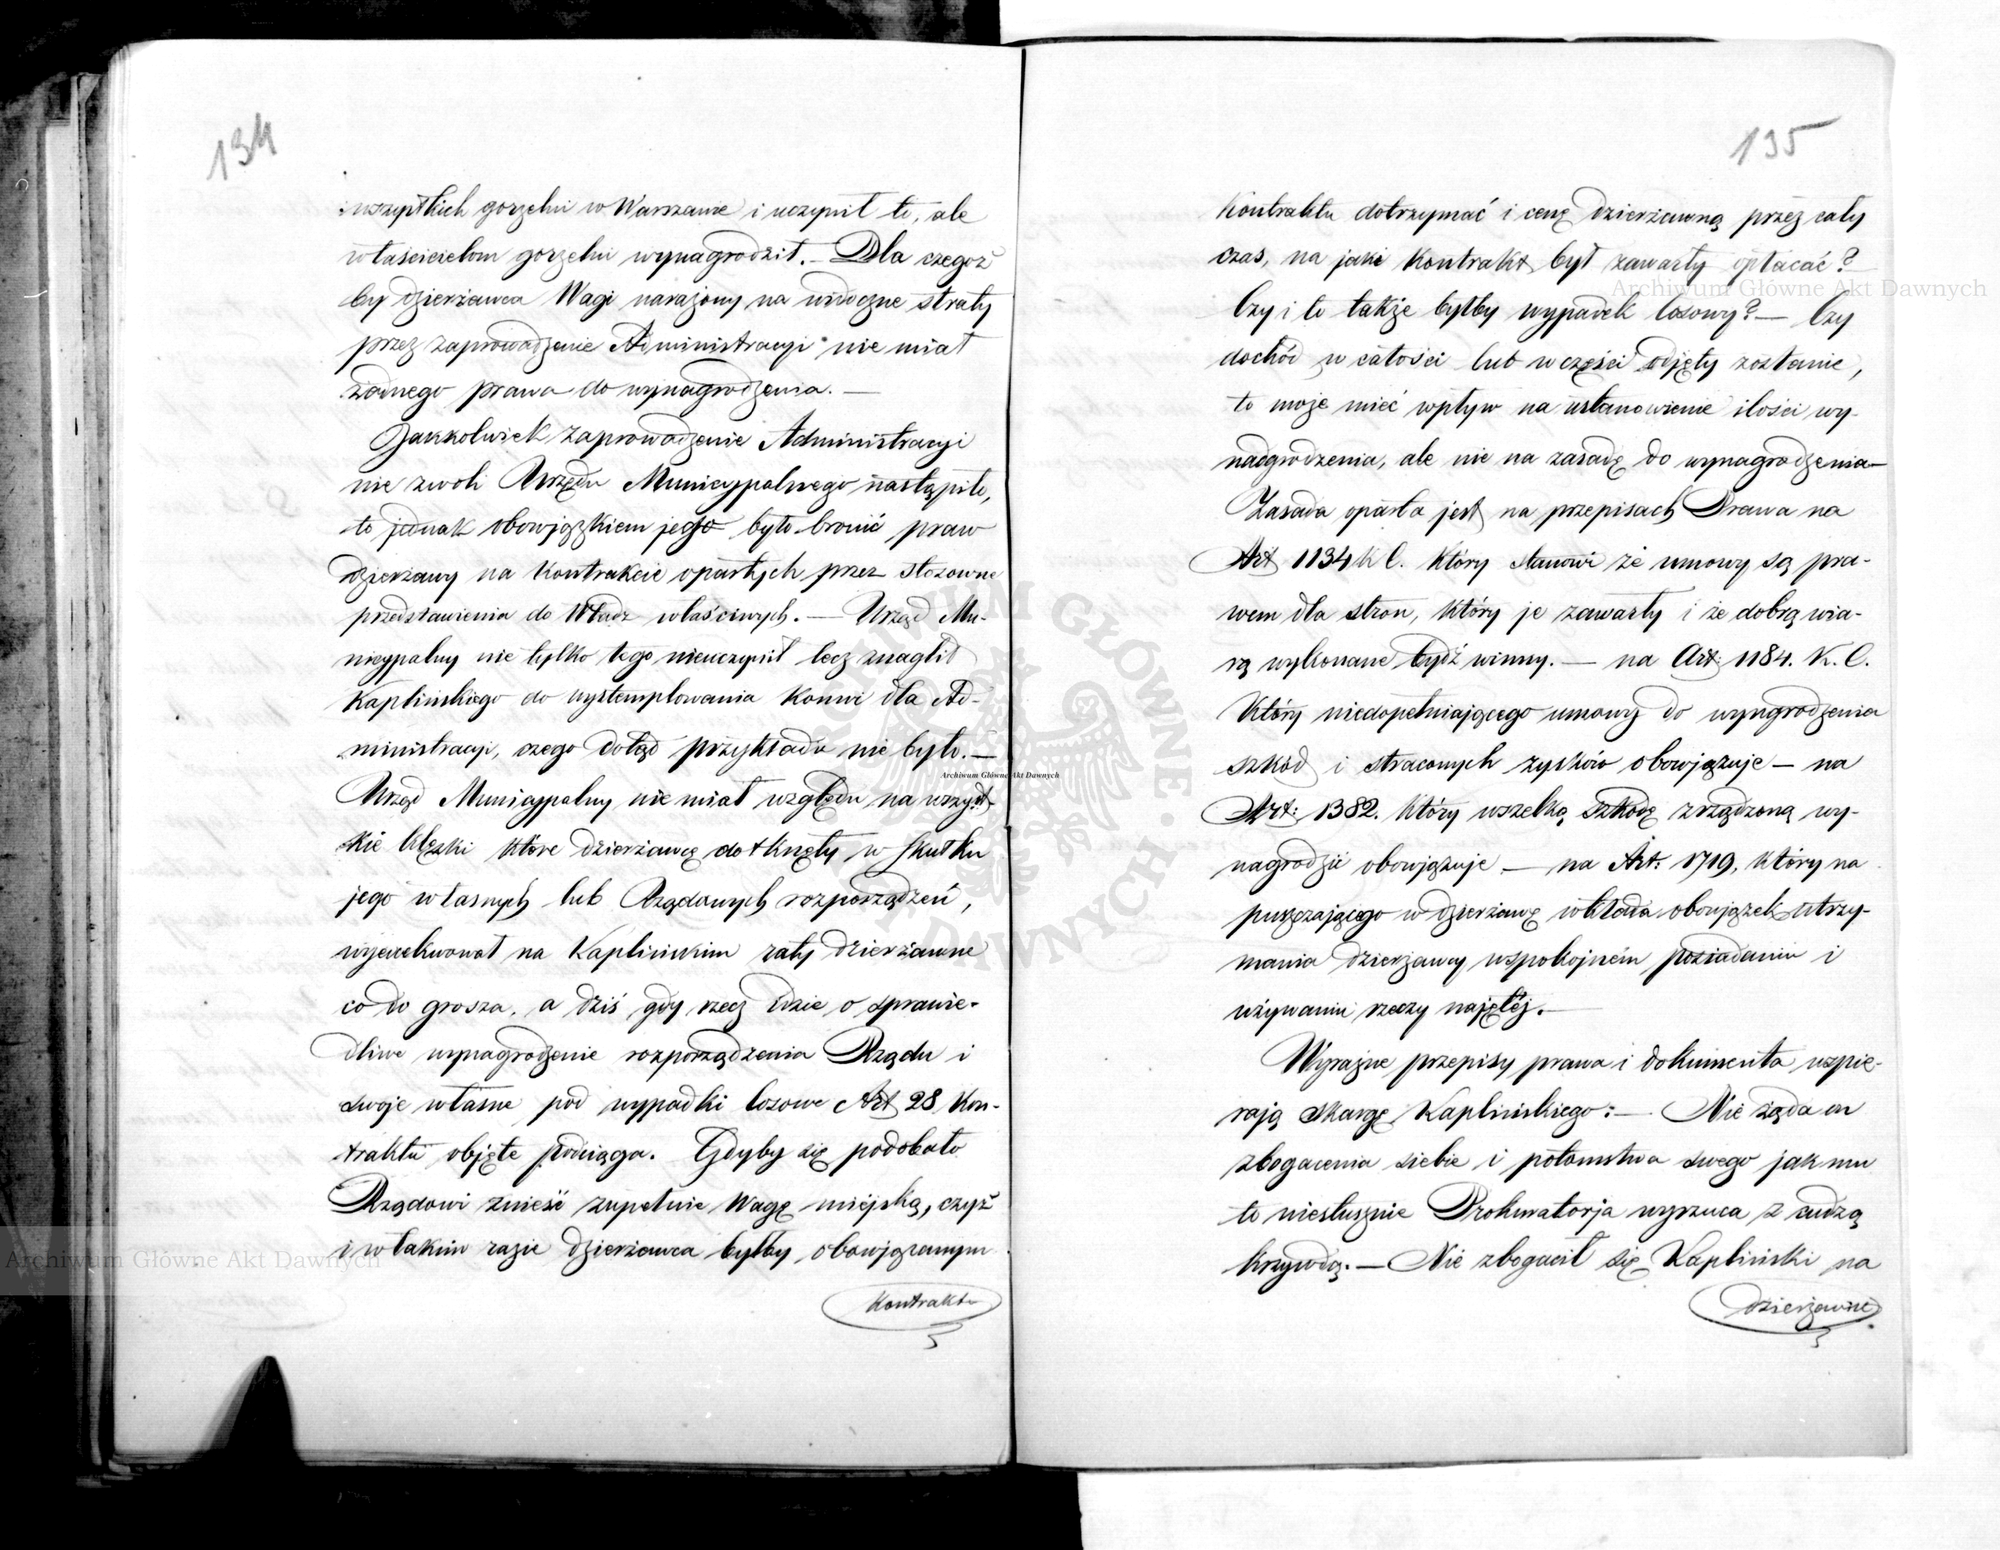 134
wszystkich gorzelni w Warszawie i uczynił to, ale
właścicielom gorzelni wynagrodził. — Dla czegoż
by dzierżawca Wagi narażony na widoczne straty
przez zaprowadzenie Administracyi nie miał
żadnego prawa do wynagrodzenia. —
Jakkolwiek zaprowadzenie Administracyi
nie z woli Urzędu Municypalnego nastąpiło,
to jednak obowiązkiem jego było bronić praw
dzierżawy na Kontrakcie opartych przez stosowne
przedstawienia do Władz właściwych. — Urząd Mu-
nicypalny nie tylko tego nieuczynił lecz znaglił
Kaplińskiego do wystemplowania Konwi dla Ad-
ministracyi, czego dotąd przykładu nie było. —
Urząd Municypalny nie miał względu na wszyst-
kie klęski które dzierżawcę dotknęły w skutku
jego własnych lub Rządowych rozporządzeń,
wyexekwował na Kaplińskim raty dzierżawne
co do grosza, a dziś gdy rzecz idzie o sprawie-
dliwe wynagrodzenie rozporządzenia Rządu i
swoje własne pod wypadki losowe Art 28 Kon-
traktu objęte podciąga. Gdyby się podobało
Rządowi znieść zupełnie Wagę miejską, czyż
i w takim razie dzierżawca byłby obowiązanym
Kontraktu
135
Kontraktu dotrzymać i cenę dzierżawną przez cały
czas, na jaki Kontrakt był zawarty opłacać?
Czy i to także byłby wypadek losowy? — Czy
dochód w całości lub w części odjęty zostanie,
to może mieć wpływ na ustanowienie ilości wy-
nadgrodzenia, ale nie na zasadę do wynagrodzenia —
Zasada oparta jest na przepisach Prawa na
Art 1134 K C. który stanowi że umowy są pra-
wem dla stron, który je zawarły i że dobrą wia-
rą wykonane bydź winny. — na Art: 1184. K. C.
Który niedopełniającego umowy do wyngrodzenia
szkód i straconych zysków obowiązuje — na
Art: 1382. Który wszelką szkodę zrządzoną wy-
nagrodzić obowiązuje — na Art. 1719, który na
puszczającego w dzierżawę wkłada obowiązek utrzy-
mania dzierżawcy w spokojném posiadaniu i
używaniu rzeczy najętéj. —
Wyraźne przepisy prawa i dokumenta wspie-
rają skargę Kaplińskiego: — Nie żąda on
zbogacenia siebie i potomstwa swego jak mu
to niesłusznie Prokuratorja wyrzuca z cudzą
krzywdą. — Nie zbogacił się Kapliński na
dzierżawie
Archiwum Główne Akt Dawnych
Archiwum Główne Akt Dawnych
Archiwum Główne Akt Dawnych
ARCHIWUM GŁÓWNE AKT DAWNYCH